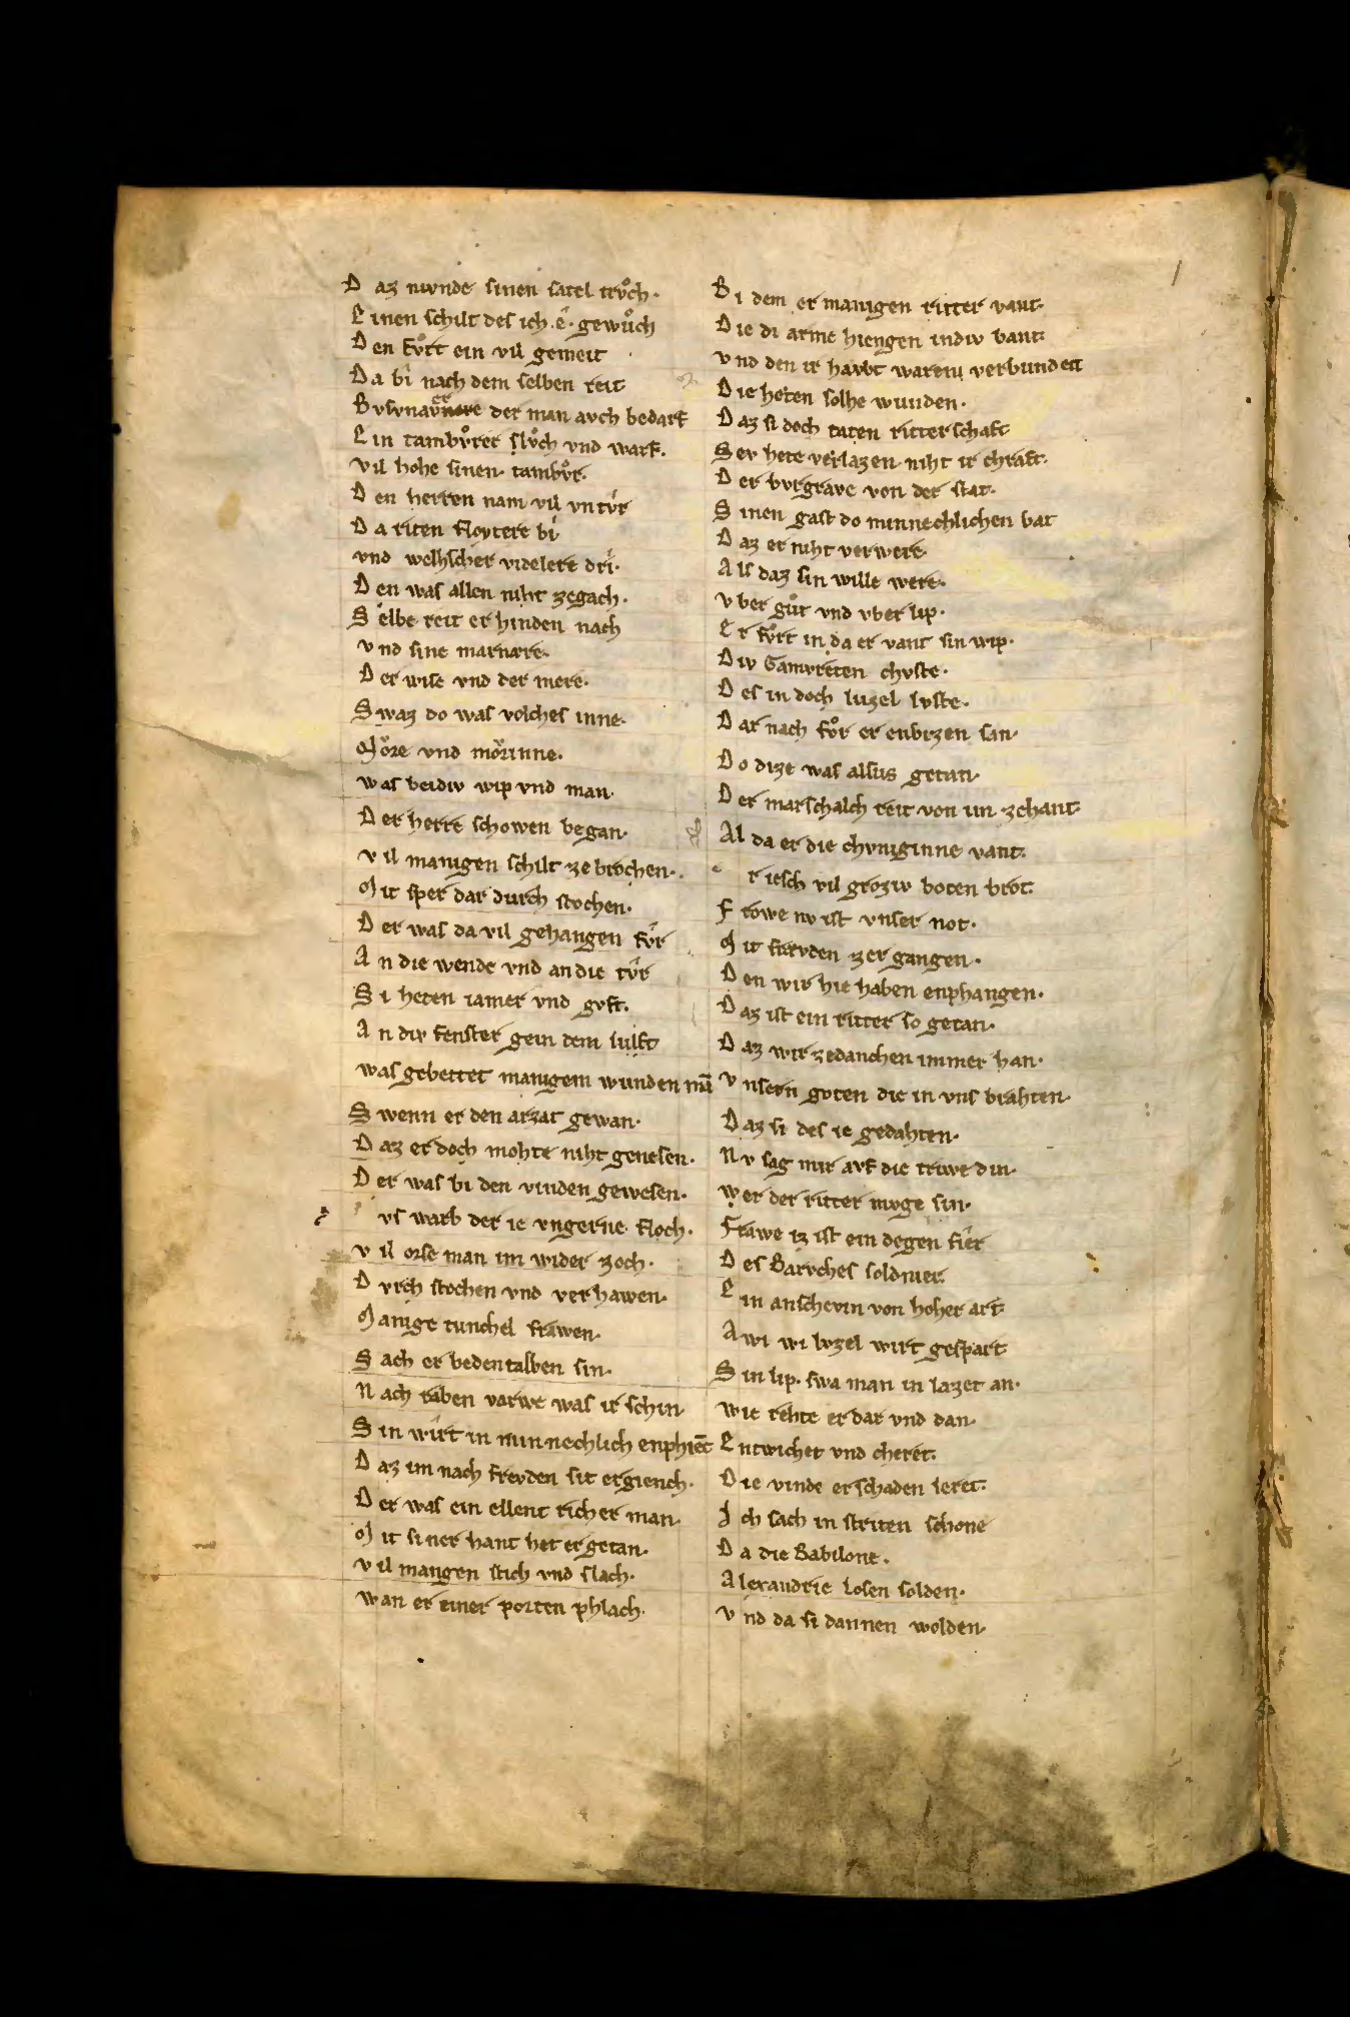 D az nivnde sinen satel trvͦch·
E inen schilt des ich·ê·gewuͦch
D en fvͦrt ein vil gemeit
D a bî nach dem selben reit
B vsvnavnere der man avch bedarf
E in tambvͦrer slvͦch vnd warf·
vil hohe sinen tambvͦr·
D en herren nam vil vntvͦr
D a riten floytere bi
vnd welhscher videlere dri·
D en was allen niht zegach·
S elbe reit er hinden nach
v nd sine marnære·
D er wise vnd der mere·
S waz do was volches inne·
M oͤre vnd moͤrinne·
w as beidiv wip vnd man·
D er herre schowen began·
v il manigen schilt zebrochen·
M it sper dar durch stochen·
D er was da vil gehangen fvͤr
A n die wende vnd an die tvͤr
S i heten iamer vnd gvft·
A n div fenster gein dem luft
was gebettet manigem wunden mā
S wenn er den arzat gewan·
D az er doch mohte niht genesen·
D er was bi den vinden gewesen·
vs warb der ie vngerne floch·
v il orse man im wider zoch·
D vrch stochen vnd verhawen·
M anige tunchel frawen·
S ach er bedentalben sin·
N ach raben varwe was ir schin·
S in wirt in minnechlich enphiēc
D az im nach frevden sit ergiench·
D er was ein ellent richer man·
M it siner hant het er getan·
v il mangen stich vnd slach·
w an er einer porten phlach·
B i dem er manigen ritter vant·
D ie di arme hiengen indiv bant·
v nd den ir havbt waren verbunden
D ie heten solhe wunden·
D az si doch taten ritterschaft
S ev hete verlazen niht ir chraft·
D er bvrgrave von der stat·
S inen gast do minnechlichen bat
D az er niht verwere
A ls daz sin wille were·
v ber guͦt vnd vber lip·
E r fvͦrt in da er vant sin wip·
D iv Gamvreten chvste·
D es in doch luzel lvste·
D ar nach fvͦr er enbizen san·
D o dize was alsus getan·
D er marschalch reit von im zchant
A l da er die chvniginne vant·
r iesch vil groziv boten brot
F rowe nv ist vnser not·
M it frevden zergangen·
D en wir hie haben enphangen·
D az ist ein ritter so getan·
D az wir zedanchen immer han·
v nsern goten die in vns brahten·
D az si des ie gedahten·
N v sag mir avf die triwe din·
w er der ritter muge sin·
F rawe iz ist ein degen fier
D es Barvches soldnier·
E in anschevin von hoher art·
A wi wi lvzel wirt gespart
S in lip· swa man in lazet an·
w ie rehte er dar vnd dan·
E ntwichet vnd cheret·
D ie vinde er schaden leret·
I ch sach in striten schone
D a die Babilone·
A lexandrie losen solden·
v nd da si dannen wolden·